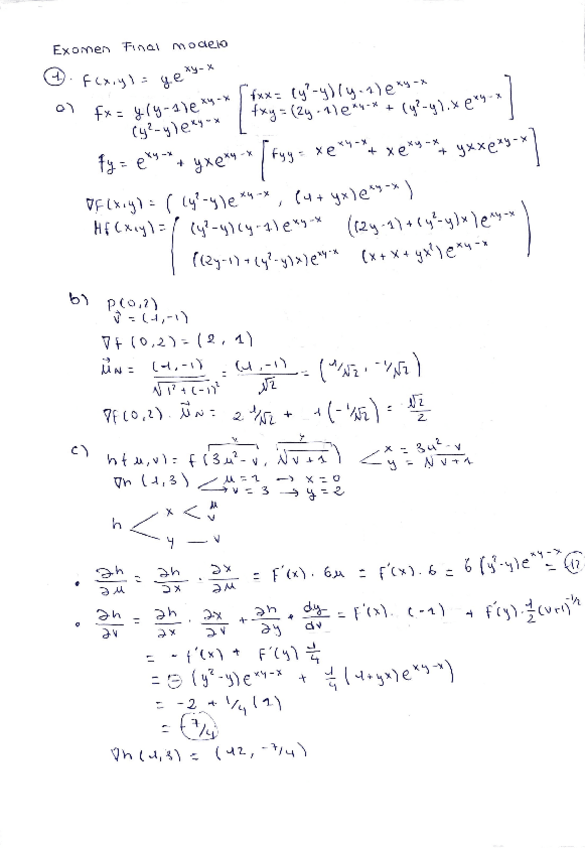 Examen Final modelo
1. f(x,y) = y.e^{xy-x}
a) fx = y(y-1)e^{xy-x} [ fxx = (y²-y)(y-1)e^{xy-x}
(y²-y)e^{xy-x} fxy = (2y-1)e^{xy-x} + (y²-y).x e^{xy-x} ]
fy = e^{xy-x} + yxe^{xy-x} [ fyy = xe^{xy-x} + xe^{xy-x} + yxxe^{xy-x} ]
∇f(x,y) = ( (y²-y)e^{xy-x} , (1+yx)e^{xy-x} )
Hf(x,y) = ( (y²-y)(y-1)e^{xy-x} ((2y-1)+(y²-y)x)e^{xy-x}
((2y-1)+(y²-y)x)e^{xy-x} (x+x+yx²)e^{xy-x} )
b) P(0,2)
v⃗ = (1,-1)
∇f(0,2) = (2, 1)
u⃗N = (1,-1)/√(1²+(-1)²) = (1,-1)/√2 = (1/√2, -1/√2)
∇f(0,2). u⃗N = 2 1/√2 + 1(-1/√2) = √2/2
c) h(u,v) = f(3u²-v, √v+1) < x = 3u²-v
y = √v+1
∇h (1,3) < u=1 → x=0
v=3 → y=2
h < x < u
v
y — v
• ∂h/∂u = ∂h/∂x . ∂x/∂u = f'(x). 6u = f'(x). 6 = 6 (y²-y)e^{xy-x} = 12
• ∂h/∂v = ∂h/∂x . ∂x/∂v + ∂h/∂y . dy/dv = f'(x). (-1) + f'(y). 1/2 (v+1)^{-1/2}
= - f'(x) + f'(y) 1/4
= - (y²-y)e^{xy-x} + 1/4 (1+yx)e^{xy-x})
= -2 + 1/4 (1)
= -7/4
∇h(1,3) = (12, -7/4)